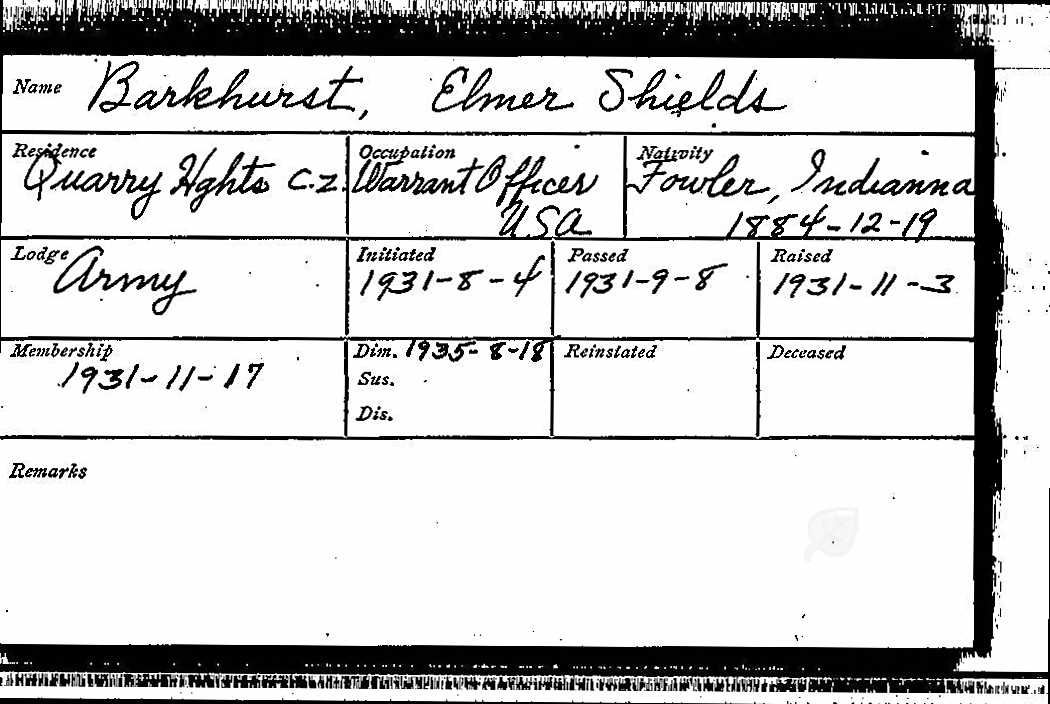 Name Barkhurst, Elmer Shields
Residence Occupation Nativity
Quarry Hghts C.Z. Warrant Officer Fowler, Indianna
USA 1884-12-19
Lodge Initiated Passed Raised
Army 1931-8-4 1931-9-8 1931-11-3
Membership Dim. 1935-8-18 Reinstated Deceased
1931-11-17 Sus.
Dis.
Remarks